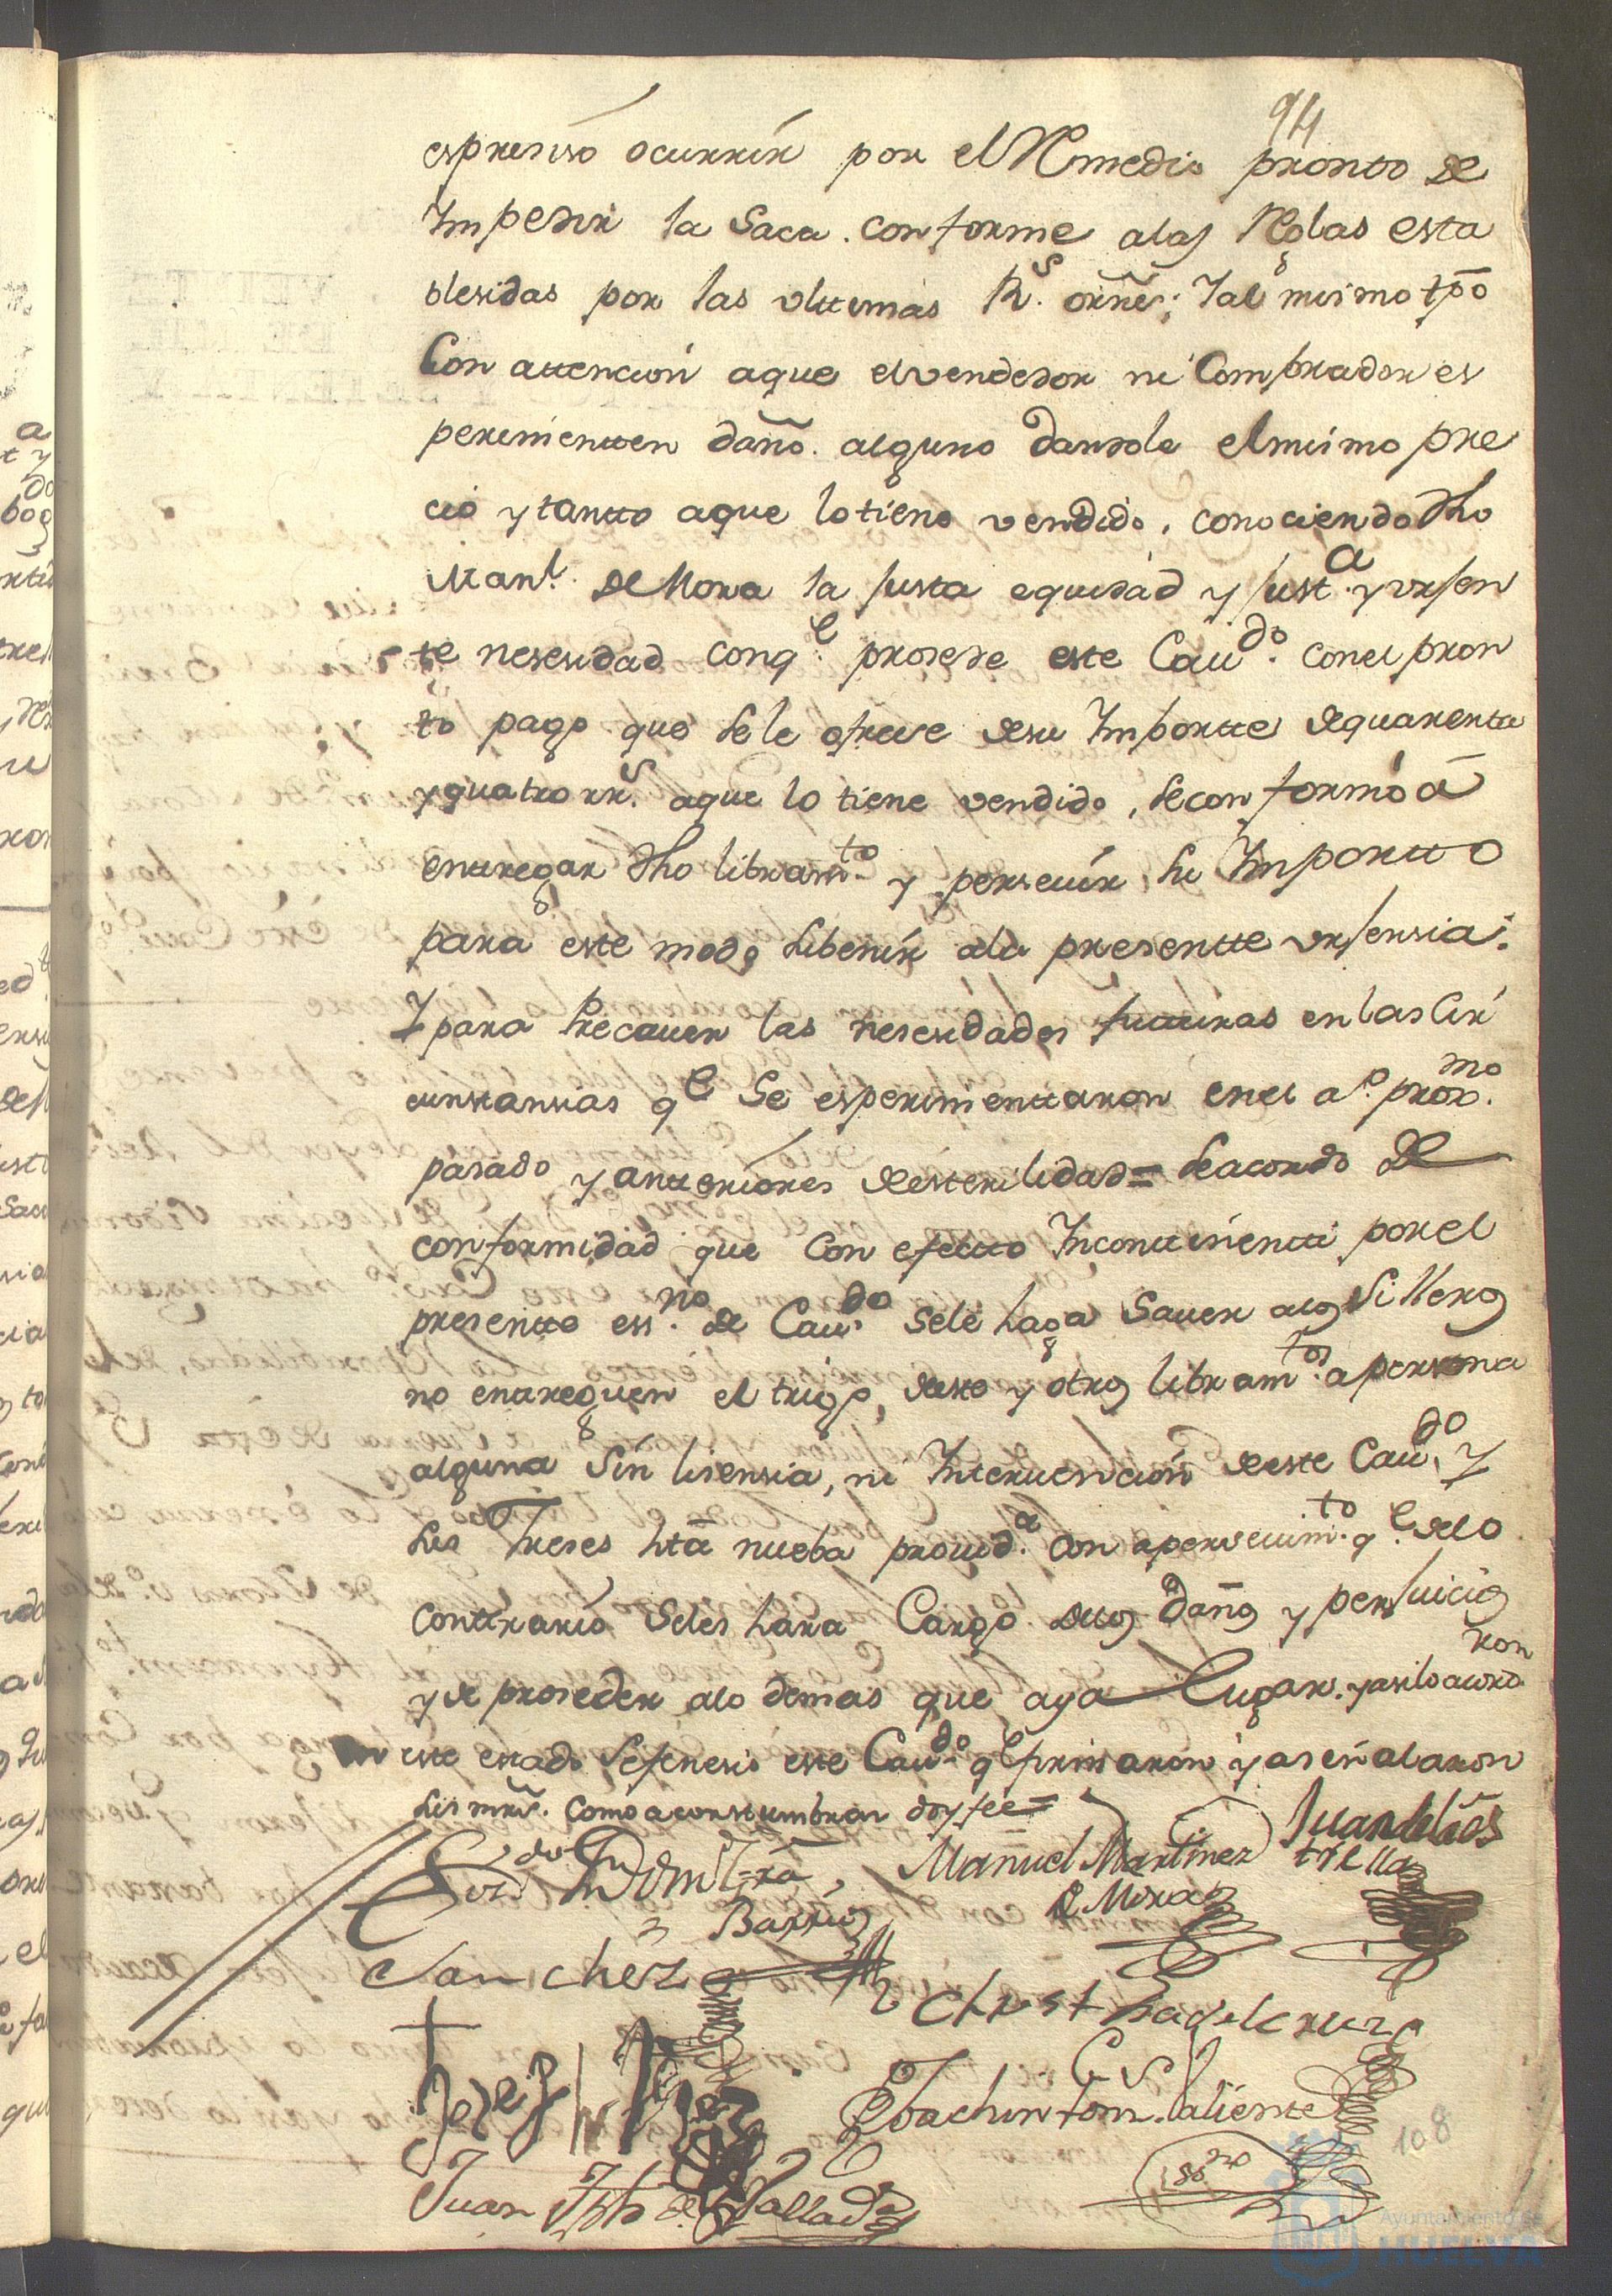 94
espresiso ocurrir por el Remedio pronto de
Impedir la Saca. conforme alas Reglas esta
blesidas por las vltimas Rs. ornes; Y al mismo tpo
Con attencion a que el vendedor ni Comprador es
perimentten daño. alguno dandole el mismo pre
cio y tantto a que lo tiene vendido, conociendo dho
Manl. de Mora la justa equidad y justa. y vrjen
te nesesidad con qe. prosede este Caudo. con el pron
to pago que se le ofrese de su Importte de quarenta
y quatro rrs. a que lo tiene vendido, se conformó á
enttregar dho libramto. y perseuir su Importto
para este modo subenir a la presentte vrjensia:
Y para Precauer las nesesidades futturas en las Cir
cunstansias qe Se esperimenttaron en el ao. proxmo.
pasado y antteriores de esterilidad = Se acordo de
conformidad que Con efectto Inconttinentti por el
presentte essno. de Caudo. se le haga Sauer a los Silleros
no enttreguen el trigo, de este y otros libramtos. a persona
alguna sin lisensia, ni Interuencion de este Caudo. Y
sus Treses hta nueba prouida. con aperseuimto. qe. de lo
conttrario Se les hara Cargo. de los daños y perjuicios
y de proseder a lo demas que aya Lugar. y asi lo acord
ron
este estado Se fenesio este Caudo. qe firmaron y aseñalaron
sus mrds. como acosttumbran doy fee =
Manuel Martinez
de Mora
Barrios
Sanchez
Christ
de la cruz
Juan
de Vallad
Joachin
Valiente
essno
108
Ayuntamiento de
HUELVA